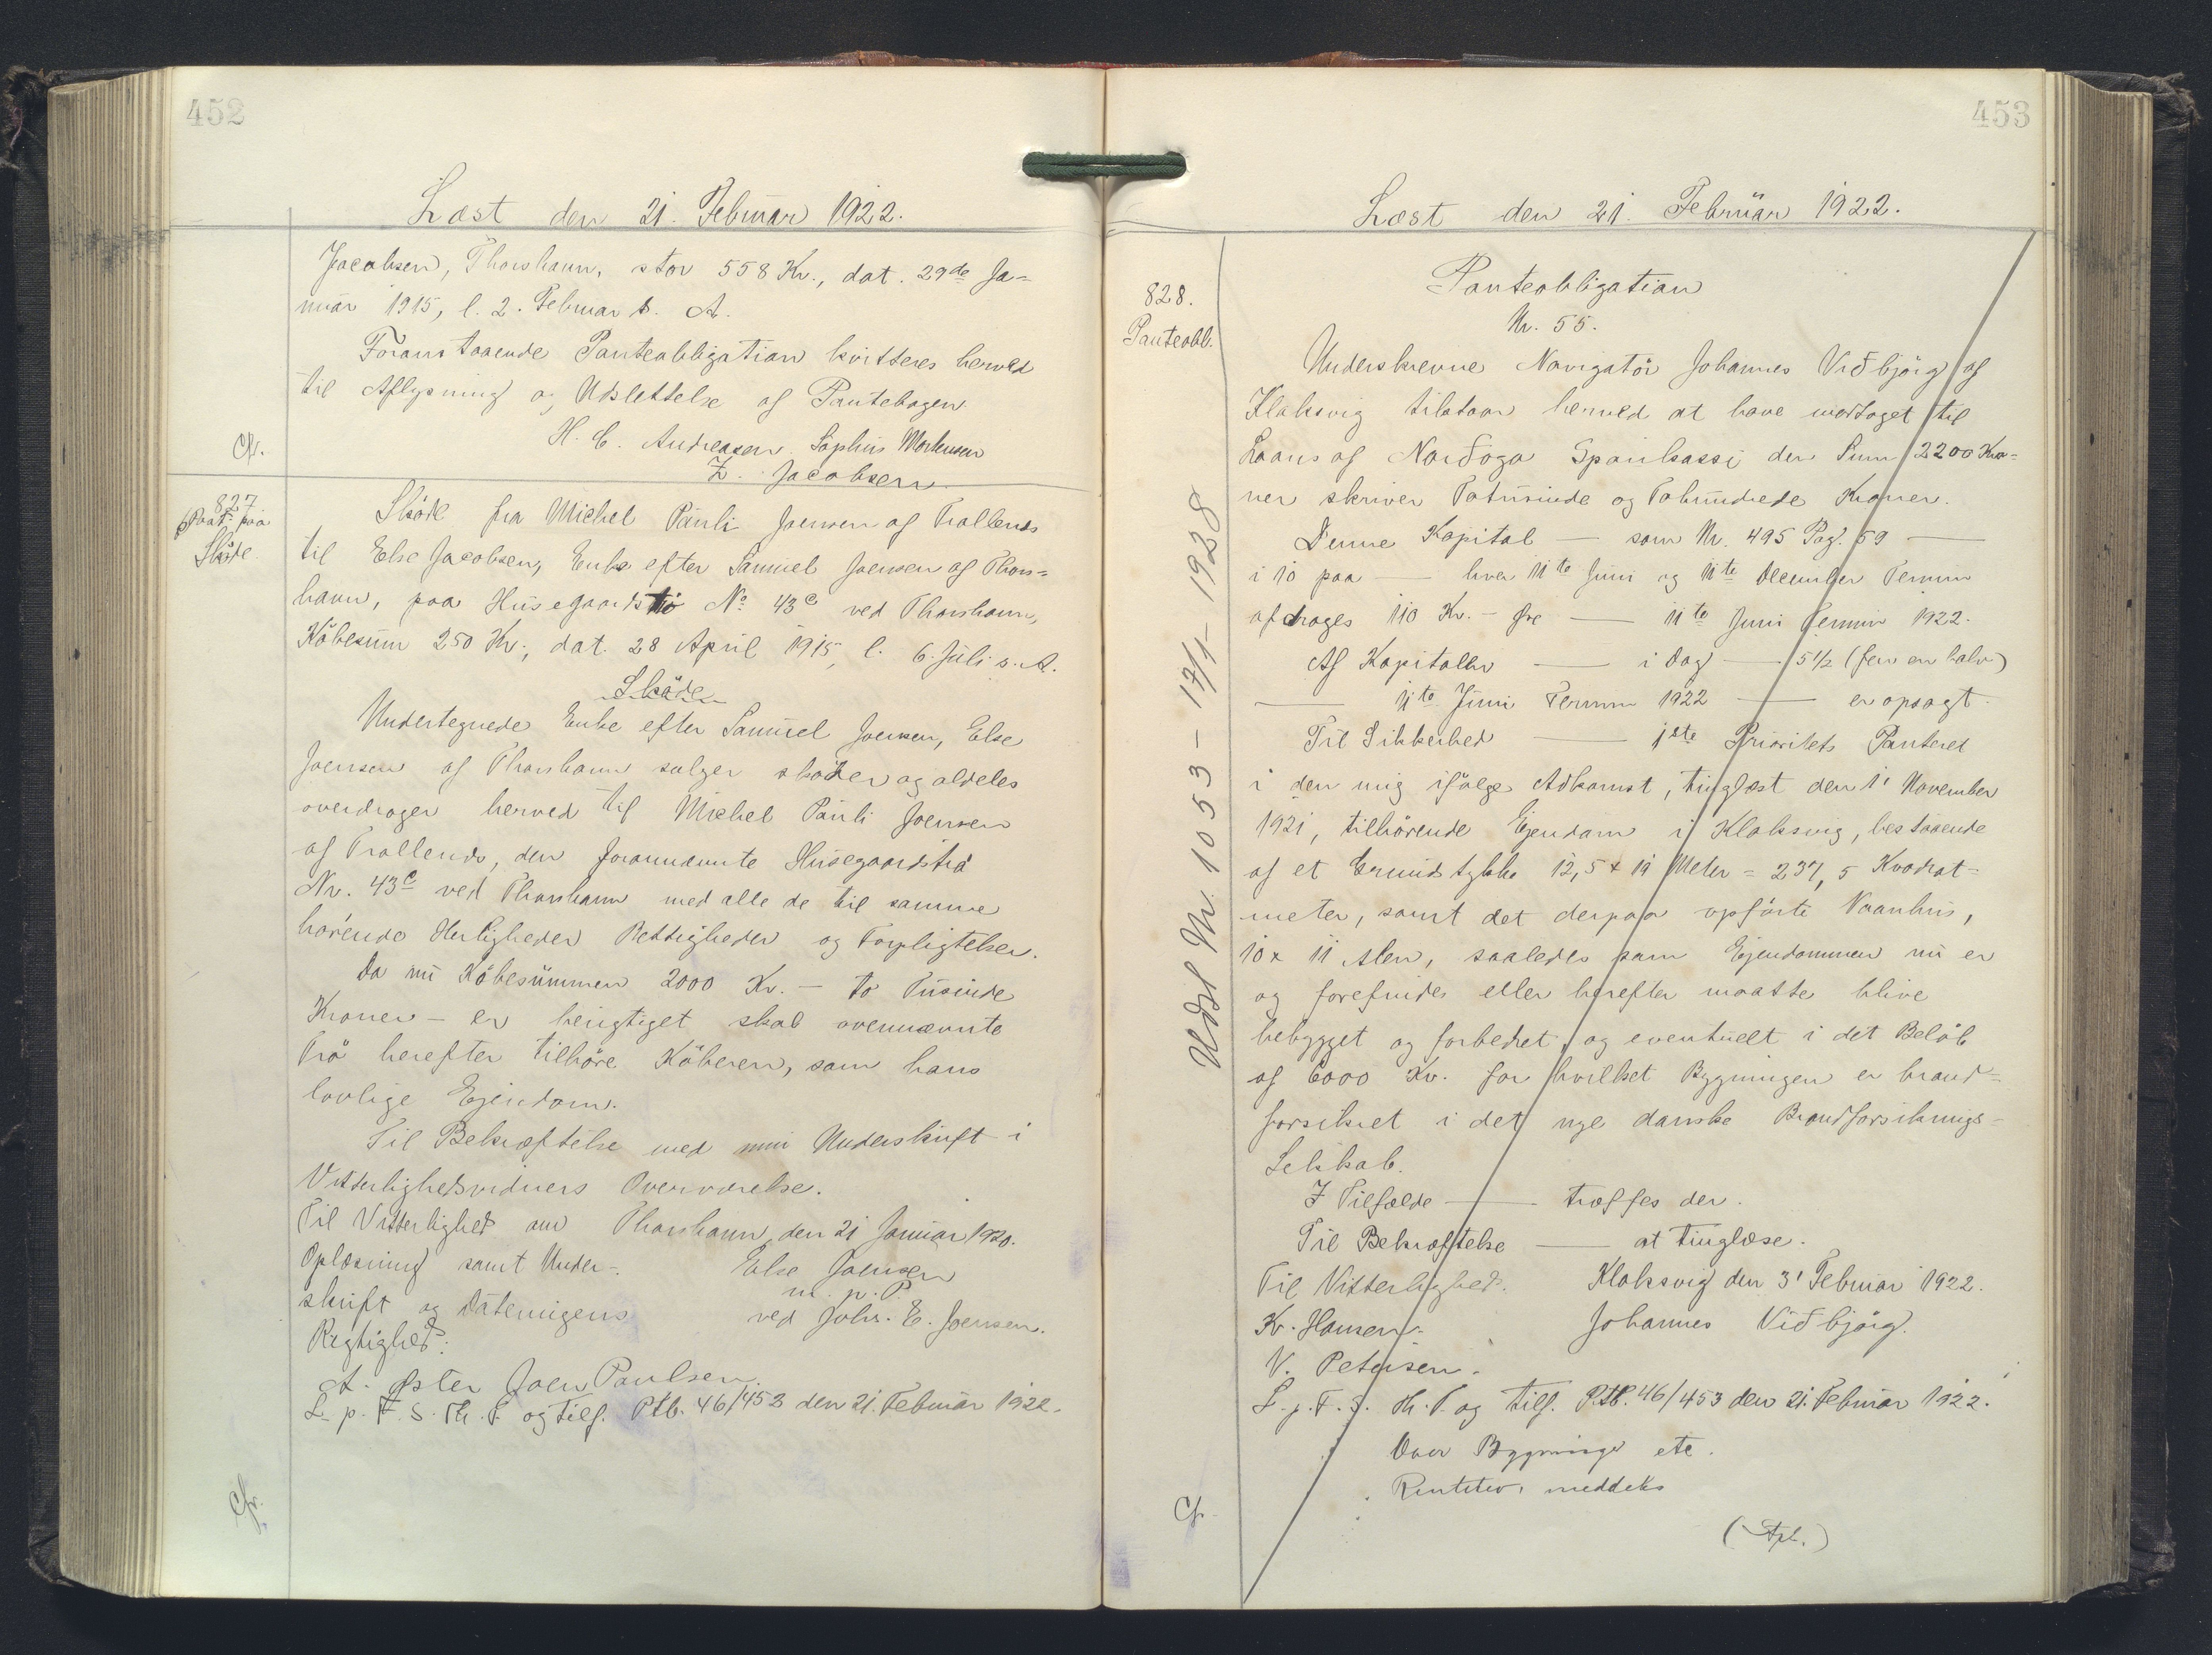 452
Læst den 21. Februar 1922.
Jacobsen, Thorshavn, stor 558 Kr., dat. 29de Ja-
nuar 1915, l. 2. Februar s. A.
Foranstaaende Panteobligation kvitteres herved
til Aflysning og Udslettelse af Pantebogen.
H. C. Andreasen Sophus Mortensen
Z. Jacobsen
Cfr.
827
Paat. paa
Skøde.
Sköde fra Michel Pauli Joensen af Trallenes
til Else Jacobsen, Enke efter Samuel Joensen af Thors-
havn, paa Husegaardströ No. 43c ved Thorshavn,
Köbesum 250 Kr., dat. 28 April 1915, l. 6. Juli s. A.
Sköde
Undertegnede Enke efter Samuel Joensen, Else
Joensen af Thorshavn sælger sköder og aldeles
overdrager herved til Michel Pauli Joensen
af Trallenes, den forannævnte Husegaardströ
Nr. 43c ved Thorshavn med alle de til samme
hörende Herligheder Rettigheder og Forpligtelser.
Da nu Köbesummen 2000 Kr. - to Tusinde
Kroner - er berigtiget skal ovennævnte
Trö herefter tilhöre Köberen, som hans
lovlige Ejendom.
Til Bekræftelse med min Underskrift i
Vitterlighedsvidners Overværelse.
Til Vitterlighed om Thorshavn, den 21 Januar 1920.
Oplæsning samt Under-
Else Joensen
m. p. P.
skrift og Dateringens
ved Johs. E. Joensen.
Rigtighed:
A. Øster Joen Paulsen.
L. p. F. S. Th. P. og tilf. Ptb. 46/453 den 21. Februar 1922.
Cfr.
453
Læst den 21. Februar 1922.
828.
Panteobl.
Panteobligation
Nr. 55.
Underskrevne Navigatör Johannes Viðbjörg af
Klaksvig tilstaar herved at have modtaget til
Laans af Norðoya Sparikassi den Sum 2200 Kro-
ner skriver Totusinde og Tohundrede Kroner.
Denne Kapital — som Nr. 495 Pag. 59 —
i 10 paa — hver 11te Juni og 11te December Termin
afdrages 110 Kr. - Øre — 11te Juni Termin 1922.
Af Kapitalen — i Dag — 5 1/2 (fem en halv)
— 11te Juni Termin 1922 — er opsagt.
Til Sikkerhed — 1ste Prioritets Panteret
i den mig ifölge Adkomst, tinglæst den 1' November
1921, tilhörende Ejendom i Klaksvig, bestaaende
af et Grundstykke 12,5 x 19 Meter = 237,5 Kvadrat-
meter, samt det derpaa opførte Vaanhus,
10 x 11 Alen, saaledes som Ejendommen nu er
og forefindes eller herefter maatte blive
bebygget og forbedret, og eventuelt i det Belöb
af 6000 Kr. for hvilket Bygningen er brand-
forsikret i det nye danske Brandforsikrings-
Selskab.
I Tilfælde — træffes der.
Til Bekræftelse — at tinglæse.
Til Vitterlighed. Klaksvig den 3' Februar 1922.
Kr. Hansen.
Johannes Viðbjörg.
V. Petersen.
L. p. F. S. Th. P. og tilf. Ptb. 46/453 den 21. Februar 1922.
Over Bygninge etc.
meddeles
Cfr.
Udsl Nr. 1053 - 17/1 - 1928